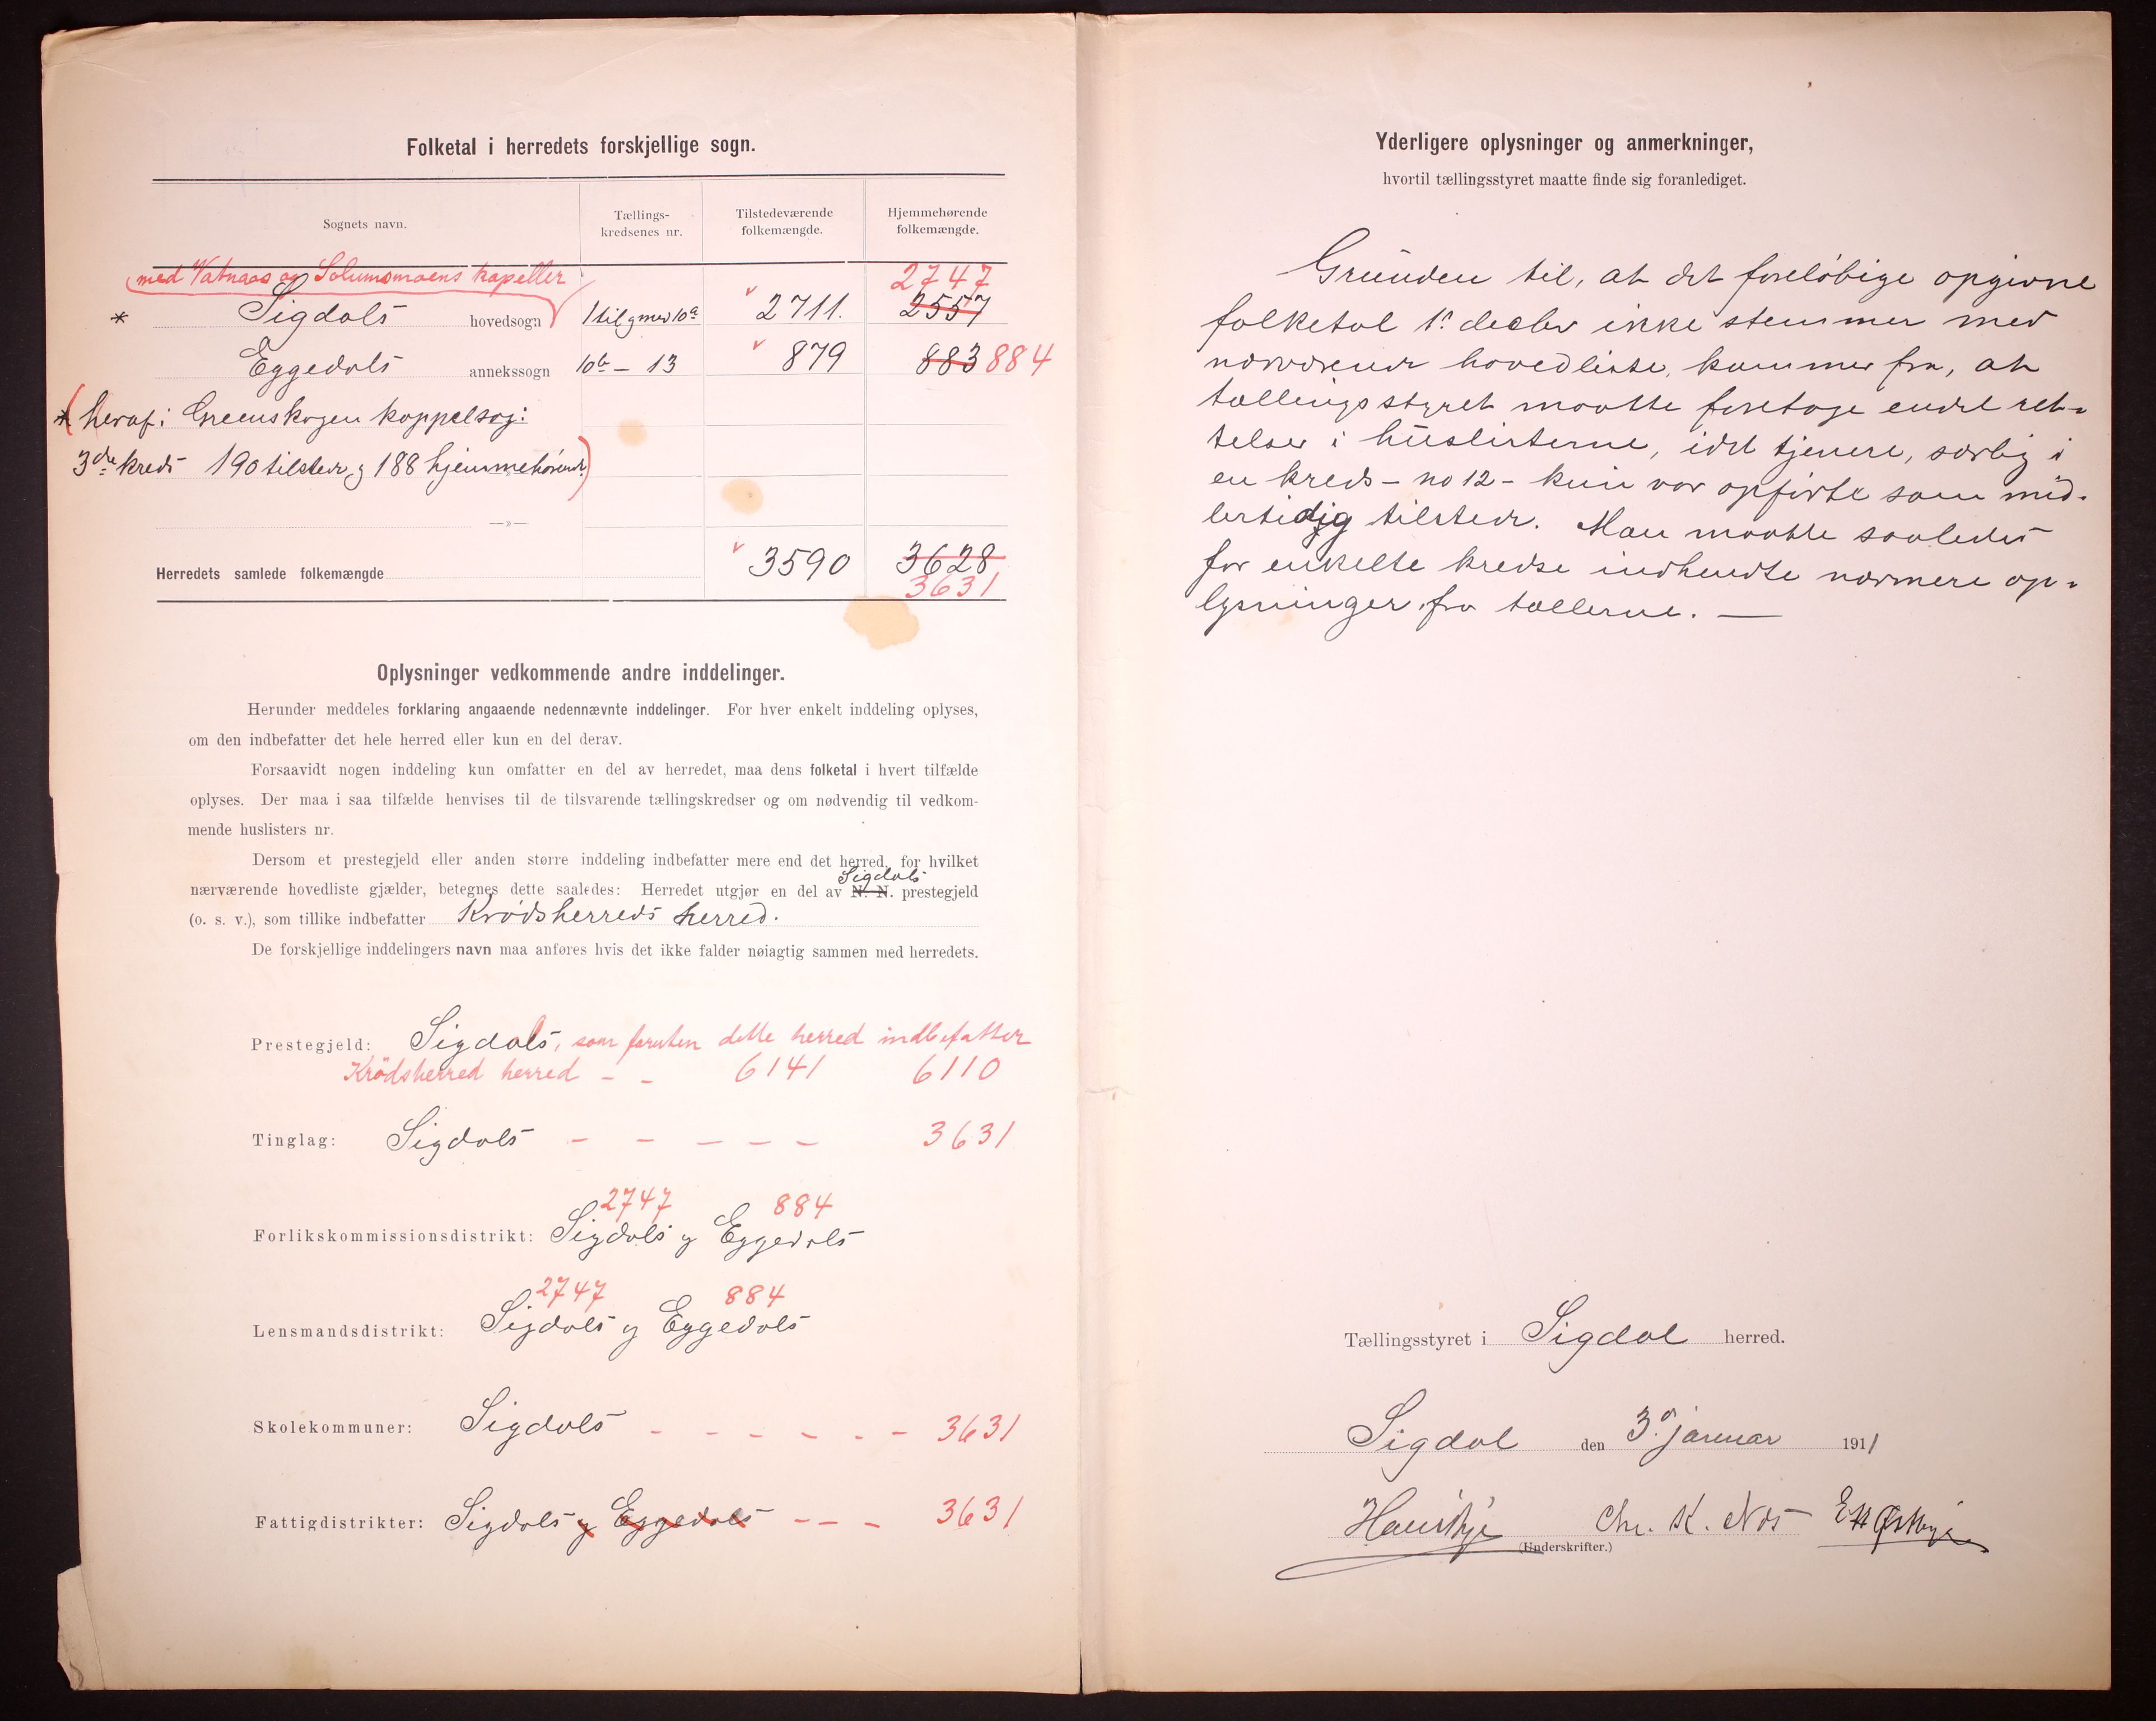 Folketal i herredets forskjellige sogn.
Sognets navn.
Tællings-
kredsenes nr.
Tilstedeværende
folkemængde.
Hjemmehørende
folkemængde.
med Vatnaas og Solumsmoens kapeller
2747
* Sigdals hovedsogn 1 til g med 10a 2711. 2557
Eggedals annekssogn 10b - 13 879 883 884
* heraf i Grenskogen kappelsog:
3die kreds 190 tilstede, g 188 hjemmehørende.
—»—
Herredets samlede folkemængde 3590 3628
3631
Oplysninger vedkommende andre inddelinger.
Herunder meddeles forklaring angaaende nedennævnte inddelinger. For hver enkelt inddeling oplyses,
om den indbefatter det hele herred eller kun en del derav.
Forsaavidt nogen inddeling kun omfatter en del av herredet, maa dens folketal i hvert tilfælde
oplyses. Der maa i saa tilfælde henvises til de tilsvarende tællingskredser og om nødvendig til vedkom-
mende huslisters nr.
Dersom et prestegjeld eller anden større inddeling indbefatter mere end det herred, for hvilket
Sigdals
nærværende hovedliste gjælder, betegnes dette saaledes: Herredet utgjør en del av N. N. prestegjeld
(o. s. v.), som tillike indbefatter Krødsherreds herred.
De forskjellige inddelingers navn maa anføres hvis det ikke falder nøiagtig sammen med herredets.
Prestegjeld: Sigdals, som foruten dette herred indbefatter
Krödsherred herred - - 6141 6110
Tinglag: Sigdals - - - - - 3631
2747 884
Forlikskommissionsdistrikt: Sigdals g Eggedals
2747 884
Lensmandsdistrikt: Sigdals g Eggedals
Skolekommuner: Sigdals - - - - - - 3631
Fattigdistrikter: Sigdals g Eggedals - - - 3631
Yderligere oplysninger og anmerkninger,
hvortil tællingsstyret maatte finde sig foranlediget.
Grunden til, at det foreløbige opgivne
folketal 1ste decbr ikke stemmer med
nærværende hovedliste, kommer fra, at
tællingsstyret maatte foretage endel ret-
telser i huslisterne, idet tjenere, særlig i
en kreds - no 12 - kun var opførte som mid-
lertidig tilstede. Man maatte saaledes
for enkelte kredse indhendte nærmere op-
lysninger fra tællerne. —
Tællingsstyret i Sigdal herred.
Sigdal den 3. januar 1911
Chr. K.
(Underskrifter.)